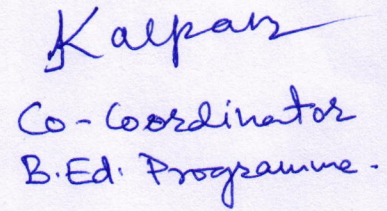 Kalpana
Co-Coordinator
B.Ed. Programme.